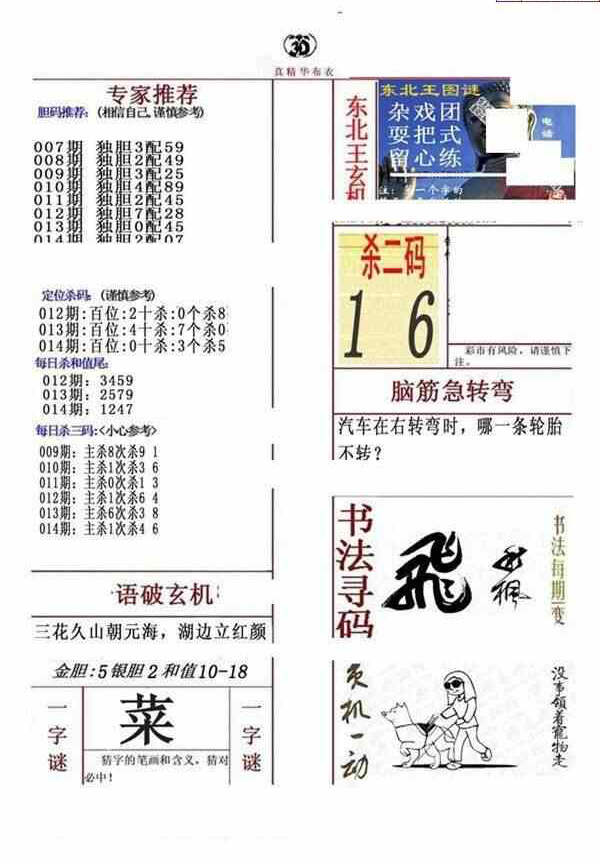 3D
真精华布衣
专家推荐
胆码推荐:(相信自己,谨慎参考)
007期 独胆3配59
008期 独胆2配49
009期 独胆3配25
010期 独胆4配89
011期 独胆2配45
012期 独胆7配28
013期 独胆0配45
014期 独胆2配07
定位杀码:(谨慎参考)
012期:百位:2十杀:0个杀8
013期:百位:4十杀:7个杀0
014期:百位:0十杀:3个杀5
每日杀和值尾:
012期: 3459
013期: 2579
014期: 1247
每日杀三码:<小心参考>
009期: 主杀8次杀9 1
010期: 主杀1次杀3 6
011期: 主杀0次杀1 3
012期: 主杀1次杀6 4
013期: 主杀6次杀3 8
014期: 主杀1次杀4 6
语破玄机
三花久山朝元海，湖边立红颜
金胆:5银胆2和值10-18
一字谜
菜
猜字的笔画和含义,猜对
必中!
一字谜
东北王玄机
东北王图谜
杂戏团
耍把式
留心练
注:一个字的
电话
杀二码
1 6
彩市有风险,请谨慎下
注。
脑筋急转弯
汽车在右转弯时，哪一条轮胎
不转?
书法寻码
飛
书法每期一变
玄机一动
没事领着宠物走